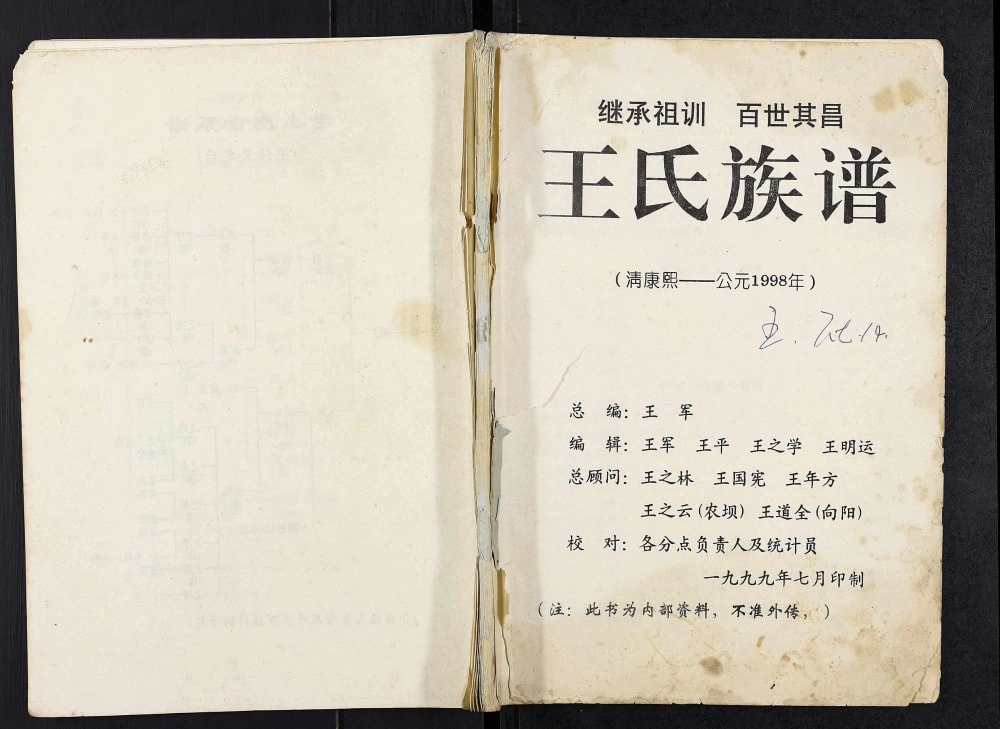 继承祖训 百世其昌
王氏族谱
(清康熙——公元1998年)
王
总 编: 王 军
编 辑: 王军 王平 王之学 王明运
总顾问: 王之林 王国宪 王年方
王之云(农坝) 王道全(向阳)
校 对: 各分点负责人及统计员
一九九九年七月印制
(注: 此书为内部资料, 不准外传, )